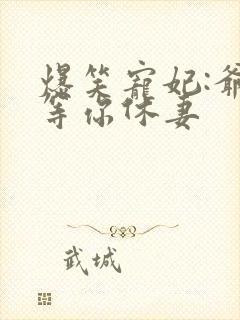 爆笑寵妃:爺
等你休妻
武城